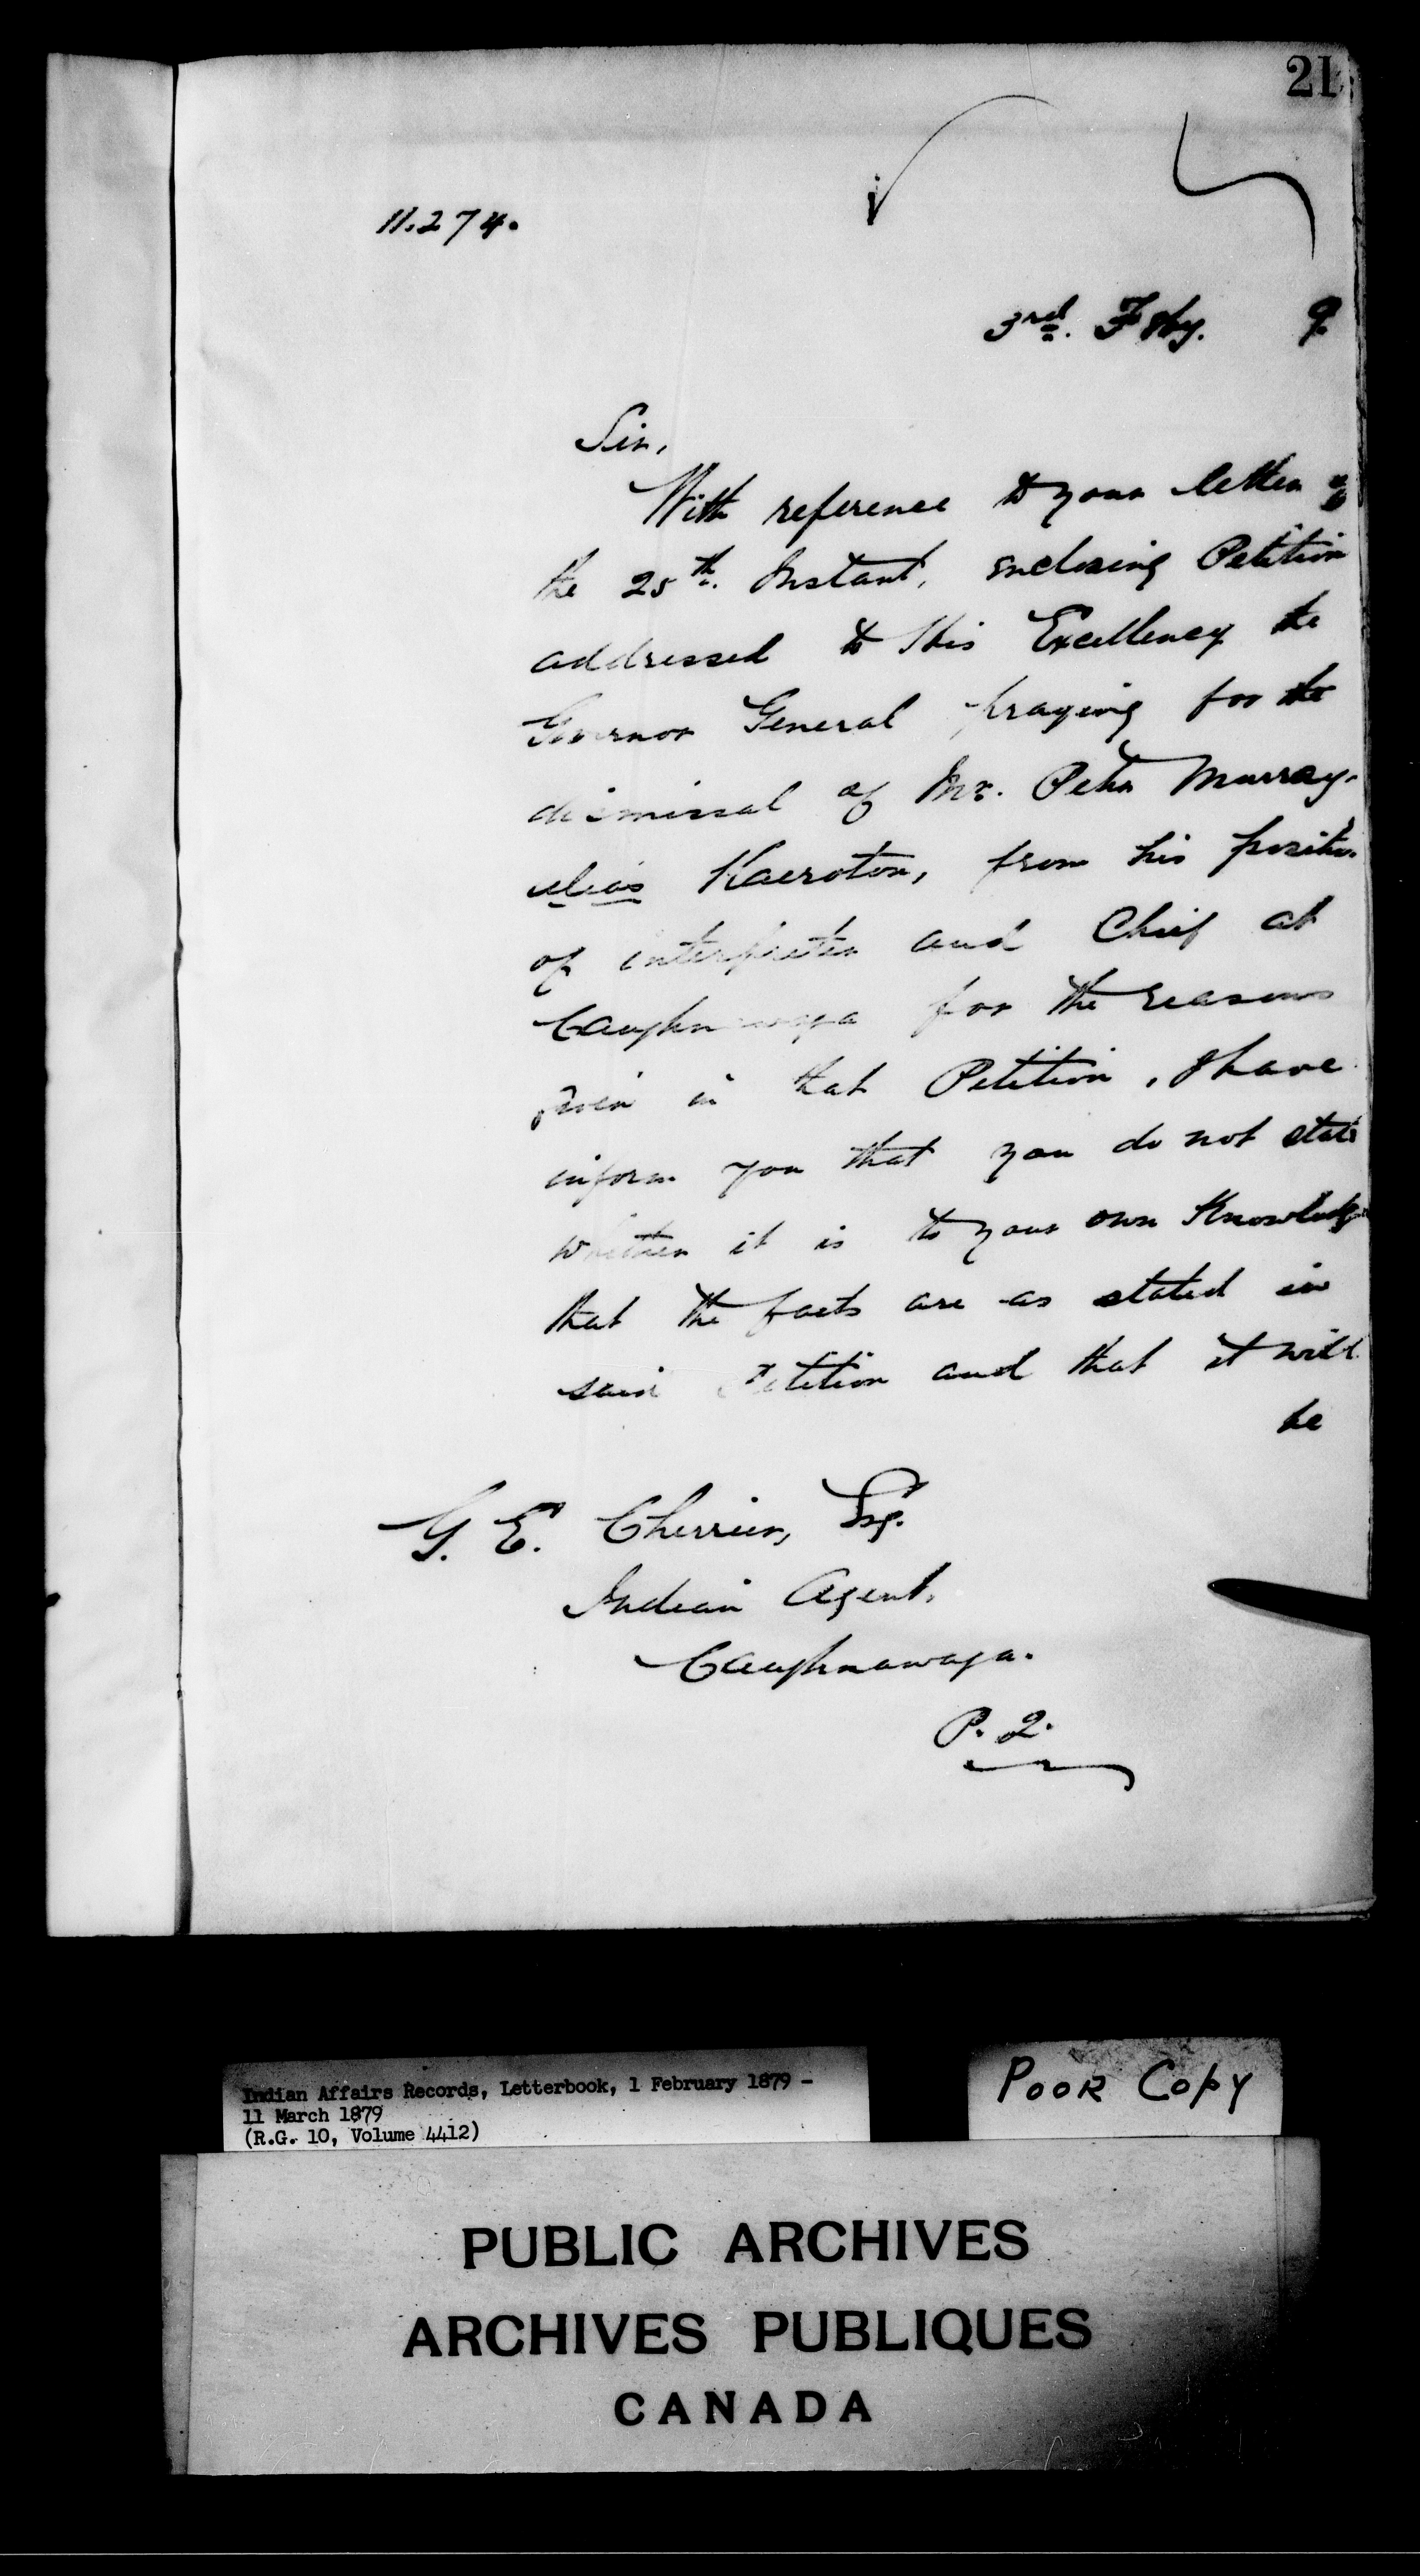 21
11.274.
3rd. Feby. 9
Sir,
With reference to your letter of
the 25th. Instant, enclosing Petition
addressed to His Excellency the
Governor General praying for the
dismissal of Mr. Peter Murray
alias Kaeroton, from his position
of interpreter and Chief at
Caughnawaga for the reasons
given in that Petition, I have
inform you that you do not state
whether it is to your own Knowledge
that the facts are as stated in
said Petition and that it will
be
G. E. Cherrier, Esq.
Indian Agent.
Caughnawaga.
P. Q.
Indian Affairs Records, Letterbook, 1 February 1879 -
11 March 1879
(R.G. 10, Volume 4412)
POOR COPY
PUBLIC ARCHIVES
ARCHIVES PUBLIQUES
CANADA